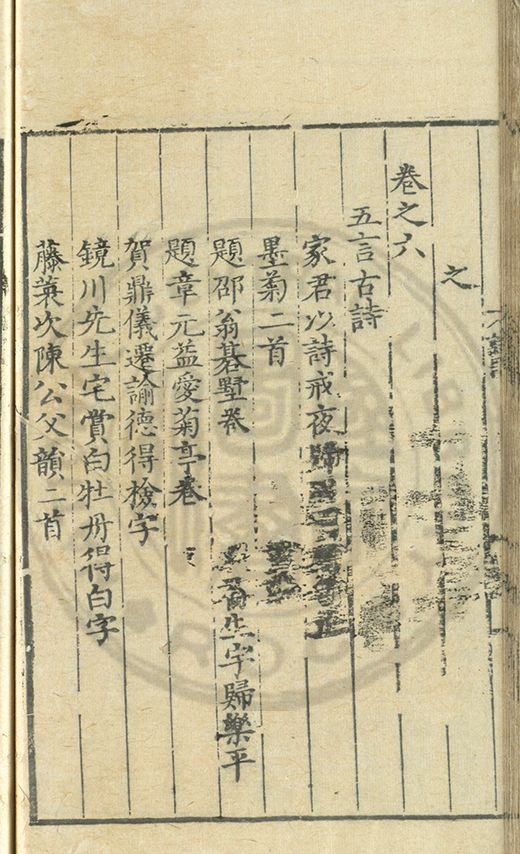 之
卷之六
五言古詩
家君以詩戒夜歸
墨菊二首
題邵翁碁墅卷 生字歸樂平
題章元益愛菊亭卷
賀鼎儀遷諭德得檢字
鏡川先生宅賞白牡丹得白字
藤蓑次陳公父韻二首